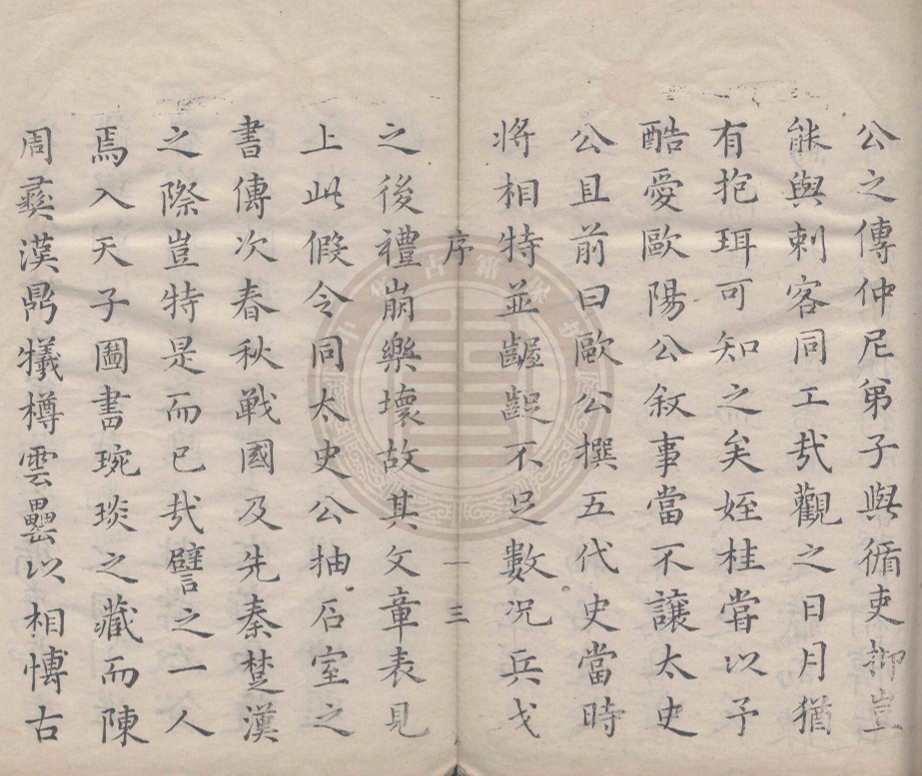 公之傳仲尼弟子與循吏抑豈
能與刺客同工㢤觀之日月猶
有抱珥可知之矣姪桂嘗以予
酷愛歐陽公敘事當不讓太史
公且前曰歐公撰五代史當時
將相特並齷齪不足數况兵戈
序
一
三
之後禮崩樂壞故其文章表見
上此假令同太史公抽石室之
書傳次春秋戰國及先秦楚漢
之際豈特是而已㢤譬之一人
焉入天子圖書琬琰之藏而陳
周彛漢鼎犧樽雲罍以相博古